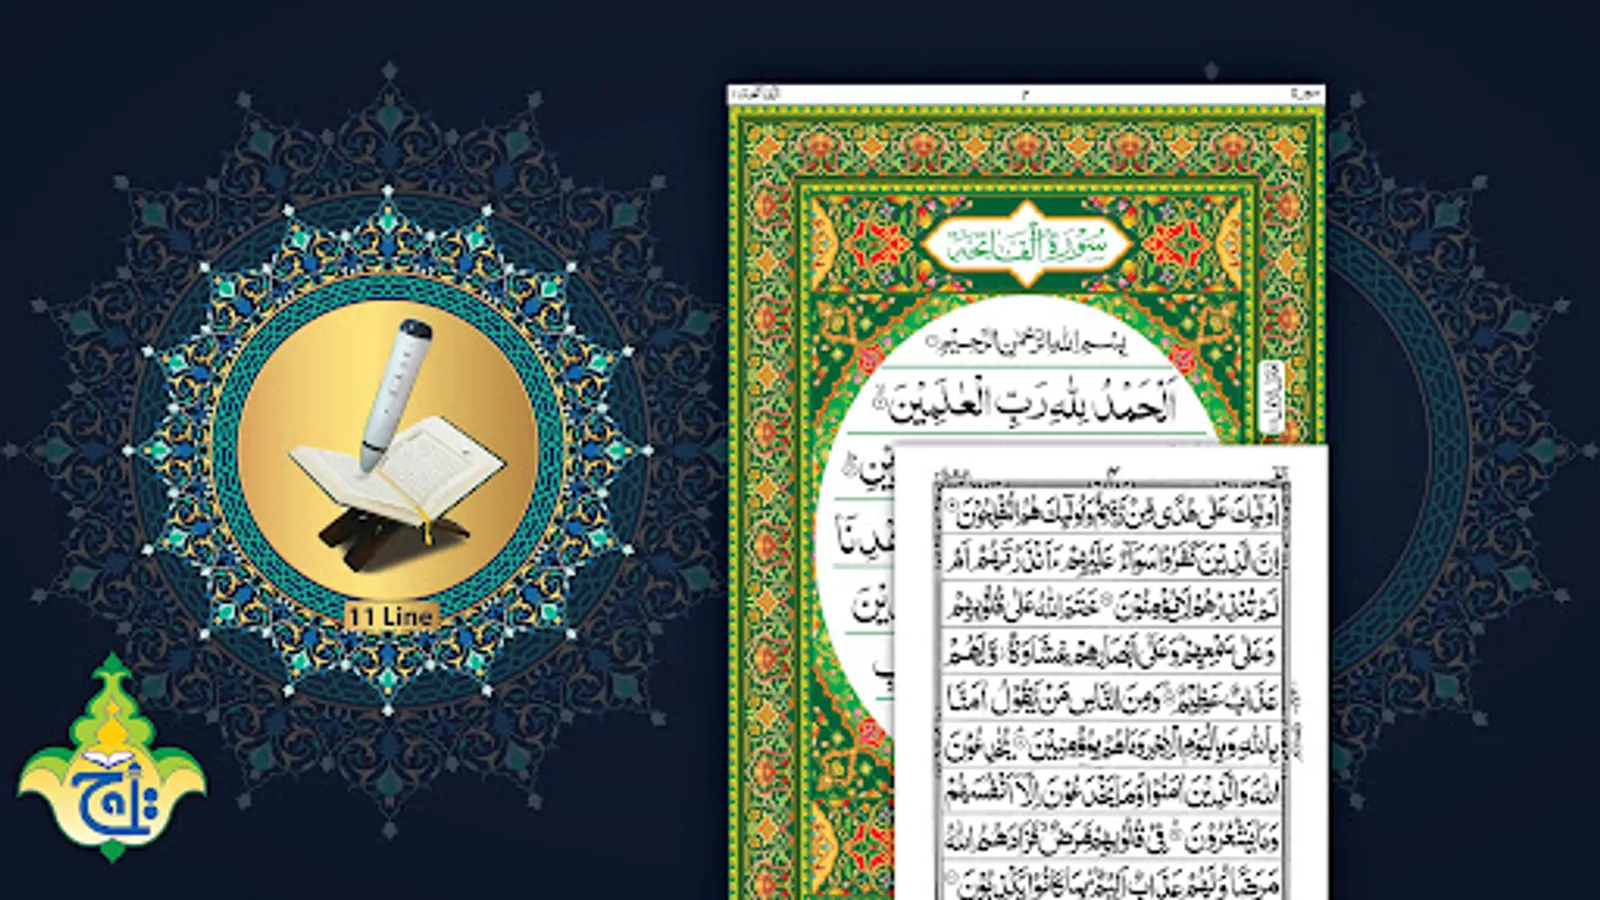 11 Line
تاج
سُوْرَةُ الْفَاتِحَةِ
بِسْمِ اللهِ الرَّحْمٰنِ الرَّحِيْمِ
اَلْحَمْدُ لِلّٰهِ رَبِّ الْعٰلَمِيْنَ
اُولٰٓئِكَ عَلٰى هُدًى مِّنْ رَّبِّهِمْ وَاُولٰٓئِكَ هُمُ الْمُفْلِحُوْنَ
اِنَّ الَّذِيْنَ كَفَرُوْا سَوَآءٌ عَلَيْهِمْ ءَاَنْذَرْتَهُمْ اَمْ
لَمْ تُنْذِرْهُمْ لَا يُؤْمِنُوْنَ خَتَمَ اللهُ عَلٰى قُلُوْبِهِمْ
وَعَلٰى سَمْعِهِمْ وَعَلٰٓى اَبْصَارِهِمْ غِشَاوَةٌ وَّلَهُمْ
عَذَابٌ عَظِيْمٌ وَمِنَ النَّاسِ مَنْ يَّقُوْلُ اٰمَنَّا
بِاللهِ وَبِالْيَوْمِ الْاٰخِرِ وَمَا هُمْ بِمُؤْمِنِيْنَ يُخٰدِعُوْنَ
اللهَ وَالَّذِيْنَ اٰمَنُوْا وَمَا يَخْدَعُوْنَ اِلَّآ اَنْفُسَهُمْ
وَمَا يَشْعُرُوْنَ فِيْ قُلُوْبِهِمْ مَّرَضٌ فَزَادَهُمُ اللهُ
مَرَضًا وَلَهُمْ عَذَابٌ اَلِيْمٌ بِمَا كَانُوْا يَكْذِبُوْنَ